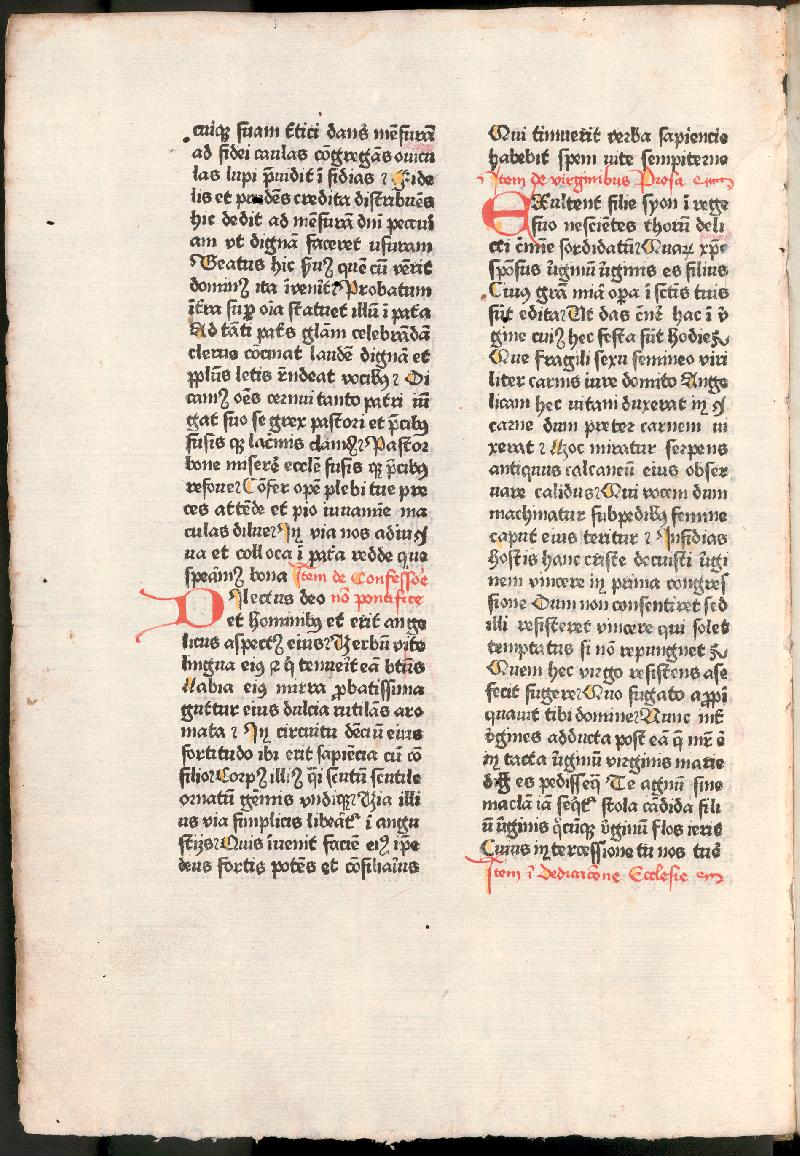 cuiqȝ suam Etici dans mēsurā
ad fidei caulas cōgregās ouicu
las lupi p̄uidit ī sidias ⁊ Fide
lis et prudēs credita distribuēs
hic dedit ad mēsurā dn̄i pecui
am vt dignā faceret vsuram
Beatus hic ẜuȝ quē cū vēit
dominȝ ita īvenit⁊ Probatum
īt̄ra sup̱ oīa statuet illū ī pat̄a
Ad tāti pat̄s glām celebrādā
clerus cōcinat laudē dignā et
pplūs letis r̄ndeat vocibȝ⁊ Di
camȝ oēs cernui tanto patri iū
gat suo se grex pastori et p̄cibȝ
fusis qȝ lac̄mis clāmȝ⁊ Pastor
bone miserē ecclē fusis qȝ p̄cibȝ
refoue⁊ Cōfer opē plebi tue pre
ces attēde et pio iuuamīe ma
culas dilue⁊ In via nos adiuu
ua et colloca ī pat̄a redde que
speāmȝ bona Item de Confessoē
Dilectus deo nō pontifice
et hominibȝ et erit ange
licus aspectȝ eius⁊ Verbū vite
lingua eiȝ ⁊ q̄ tenueīt eā bt̄us
Labia eiȝ mirra ꝓbatissima
guttur eius dulcia rutilās aro
mata ⁊ In circuitu dēciū eius
fortitudo ibi erit sapiēcia cū cō
silio⁊ Corpȝ illiȝ q̄si scutū scutile
ornatū gēmis vndiqȝ⁊ Via illi
us via simplicis libeāt̄ ī angu
stijs⁊ Quis īuenit faciē eiȝ īpe
deus fortis potēs et cōsiliaīus
Qui timuerit verba sapiencie
habebit spem vite sempiterne
Item de virginibus Prosa
Exultent filie syon ī rege
suo nesciētes thorū deli
cti ēnme sordidatū⁊ Quaꝝ xp̄e
spōsus v̄ginū v̄ginis es filius
Cuiȝ grā miā opa ī sc̄tis tuis
sūt edita⁊ Ut das cēnē hac ī v̄
gine cuiȝ hec festa sūt hodie⁊
Que fragili sexu femineo viri
liter carnis iure domito Ange
licam hec vitam duxerat in
carne dum preter carnem ui
xerat ⁊ Hoc miratur serpens
antiquus calcaneū eius obser
uare calidus⁊ Qui vocem dum
machinatur subpedibȝ femine
caput eius teritur ⁊ Insidias
hostis hanc criste docuisti v̄gi
nem vincere in prima congres
sione Dum non consentiret sed
illi resisteret vincere qui soles
temptatus si nō repungnet ⁊
Quem hec virgo resistens a se
fecit fugere⁊ Quo fugato aꝓpi
quauit tibi domine⁊ Nunc int̄
v̄gines adducta post eā q̄ mr̄ ē
in tacta v̄ginū virginis matie
es pedisseq̄ Te agnū sine
maclā iā seq̄t̄ stola cādida fili
ū v̄ginis q̄cūqȝ v̄ginū flos ieris
Cuius intercessione tu nos tuē
Item ī Dedicacōne Ecclesie